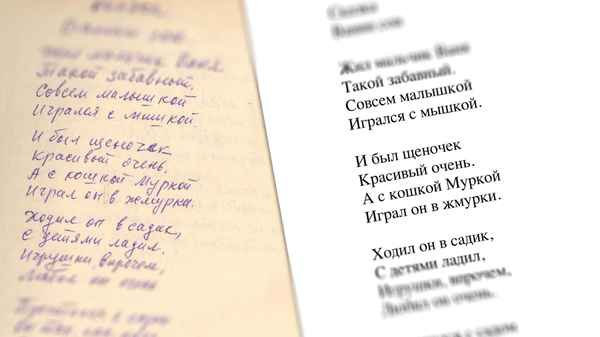 Жил мальчик Ваня
Такой забавный.
Совсем малышкой
Игрался с мышкой.
И был щеночек
Красивый очень.
А с кошкой Муркой
Играл он в жмурки.
Ходил он в садик,
С детями ладил.
Игрушки, впрочем,
Любил он очень
Сказка
Ванин сон
Жил мальчик Ваня
Такой забавный.
Совсем малышкой
Игрался с мышкой.
И был щеночек
Красивый очень.
А с кошкой Муркой
Играл он в жмурки.
Ходил он в садик,
С детями ладил,
Игрушки, впрочем,
Любил он очень.
с садом